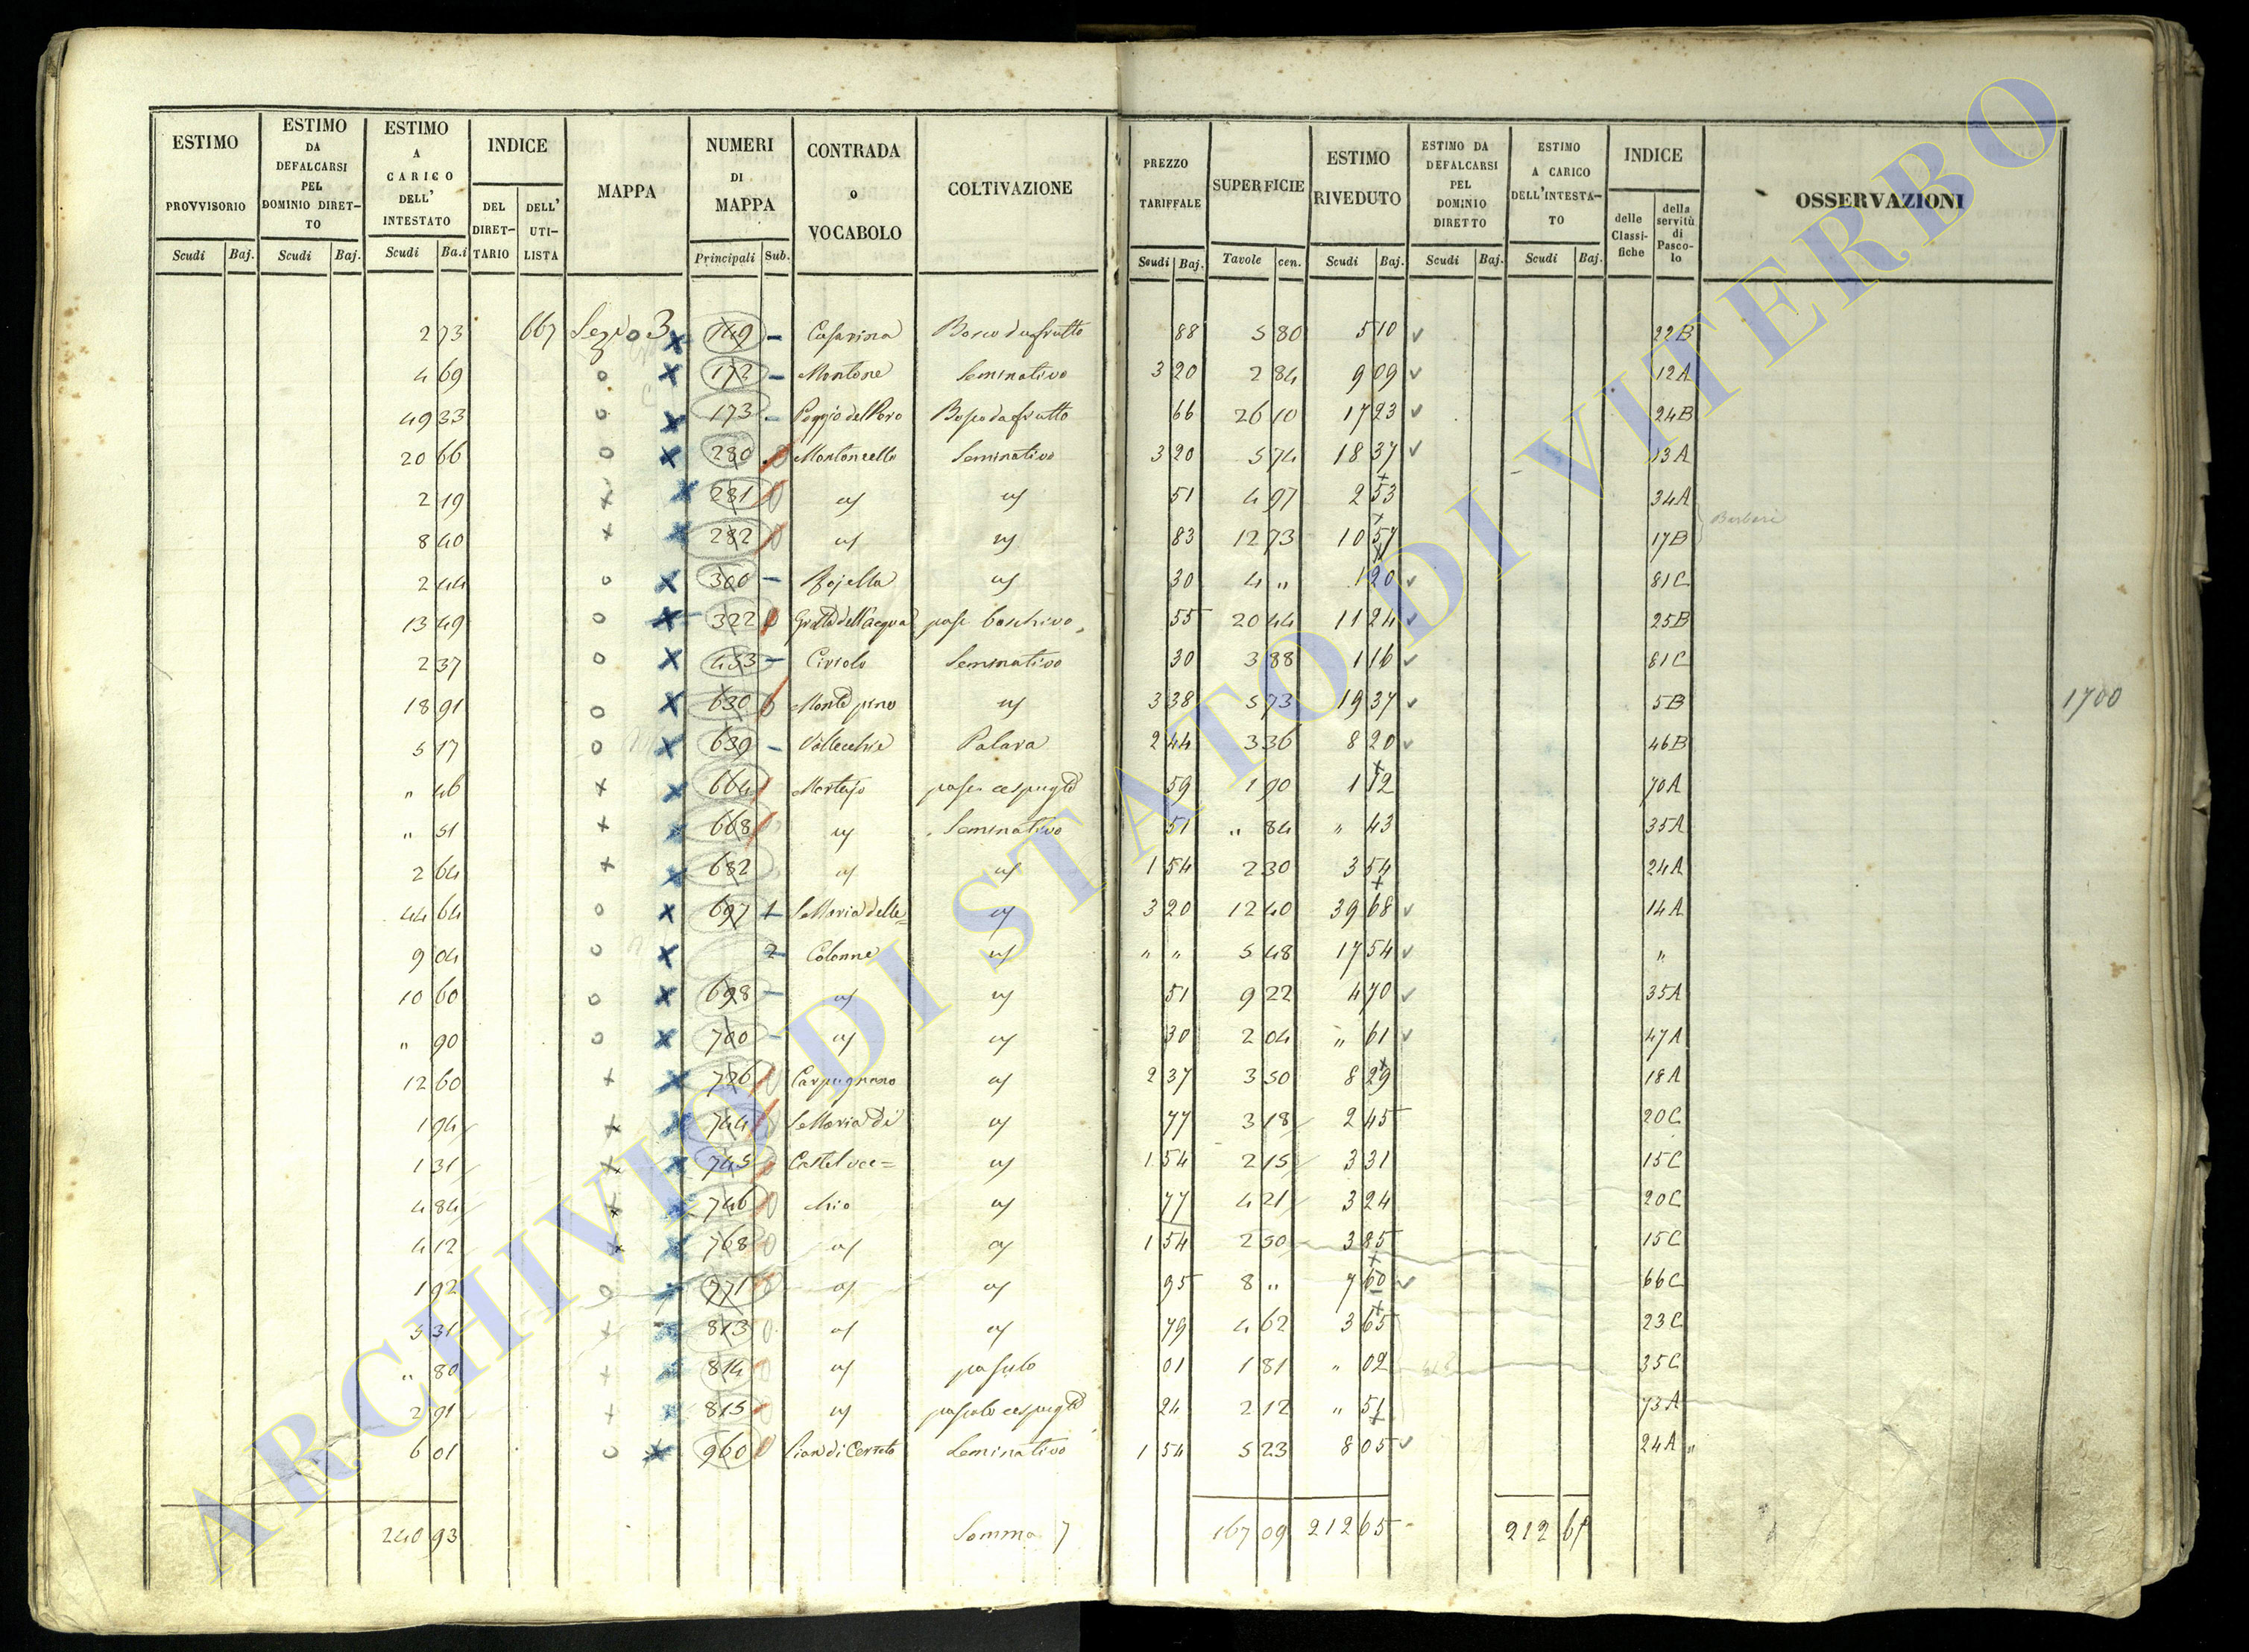 ESTIMO PROVVISORIO
ESTIMO DA DEFALCARSI PEL DOMINIO DIRET-TO
ESTIMO A CARICO DELL' INTESTATO
INDICE
DEL DIRET-TARIO
DELL' UTI-LISTA
MAPPA
NUMERI DI MAPPA
CONTRADA o VOCABOLO
COLTIVAZIONE
PREZZO TARIFFALE
SUPERFICIE
ESTIMO RIVEDUTO
ESTIMO DA DEFALCARSI PEL DOMINIO DIRETTO
ESTIMO A CARICO DELL'INTESTA-TO
INDICE
delle Classi-fiche
della servitù di Pasco-lo
OSSERVAZIONI
Scudi Baj. Scudi Baj. Scudi Ba.i Principali Sub. Scudi Baj. Tavole cen. Scudi Baj. Scudi Baj. Scudi Baj.
2 73 667 3 149 – 88 5 80 5 10 22B
4 69 172 – Montone Seminativo 3 20 2 84 9 09 12A
49 33 173 – Poggio del Pero Bosco da frutto 66 26 10 17 23 24B
20 66 280 Montoncello Seminativo 3 20 5 74 18 37 13A
2 19 281 51 4 97 2 53 34A
8 40 282 83 12 73 10 57 17B
2 44 300 – 30 4 „ 1 20 81C
13 49 322 Grotta dell'acqua pasc. boschivo 55 20 44 11 24 25B
2 37 433 – Seminativo 30 3 88 1 16 81C
18 91 630 Monte pino 3 38 5 73 19 37 5B
1700
5 17 639 – Vallecchie 2 44 3 36 8 20 46B
„ 46 664 59 1 90 1 12 70A
„ 51 668 Seminativo 51 „ 84 „ 43 35A
2 64 682 1 54 2 30 3 54 24A
44 64 697 1 S. Maria delle= 3 20 12 40 39 68 14A
9 04 2 Colonne „ „ 5 48 17 54 „
10 60 698 – 51 9 22 4 70 35A
„ 90 700 – 30 2 04 „ 61 47A
12 60 726 Carpugnano 2 37 3 50 8 29 18A
1 94 744 S. Maria di 77 3 18 2 45 20C
1 31 745 Castel vec= 1 54 2 15 3 31 15C
4 84 746 chio 77 4 21 3 24 20C
4 12 768 1 54 2 50 3 85 15C
1 92 771 95 8 „ 7 60 66C
5 31 813 79 4 62 3 65 23C
„ 80 814 pascolo 01 1 81 „ 02 35C
2 91 815 24 2 12 „ 51 73A
6 01 960 Pian di Cerreto Seminativo 1 54 5 23 8 05 24A „
240 93 Somma 167 09 212 65 212 65
ARCHIVIO DI STATO DI VITERBO